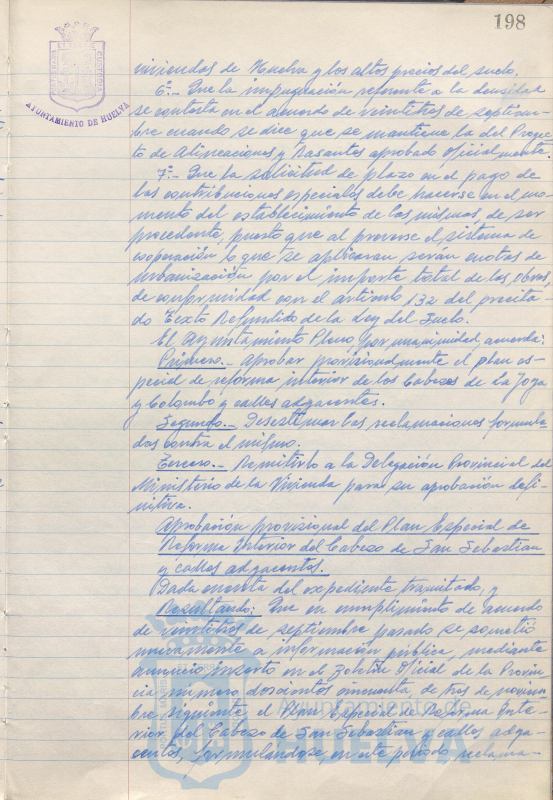 198
AYUNTAMIENTO DE HUELVA
viviendas de Huelva y los altos precios del suelo.
6º.- Que la impugnación referente a la densidad
se contesta en el acuerdo de veintitres de septiem-
bre cuando se dice que se mantiene la del Proyec-
to de Alineaciones y Rasantes aprobado oficialmente.
7º.- Que la solicitud de plazo en el pago de
las contribuciones especiales debe hacerse en el mo-
mento del establecimiento de las mismas de ser
procedente, puesto que al preverse el sistema de
cooperación lo que se aplicaran serán cuotas de
urbanización por el importe total de las obras,
de conformidad con el artículo 132 del precita-
do Texto Refundido de la Ley del Suelo.
El Ayuntamiento Pleno, por unanimidad, acuerda:
Primero.- Aprobar provisionalmente el plan es-
pecial de reforma interior de los Cabezos de La Joya
y Colombo y calles adyacentes.
Segundo.- Desestimar las reclamaciones formula-
das contra el mismo.
Tercero.- Remitirlo a la Delegación Provincial del
Ministerio de la Vivienda para su aprobación defi-
nitiva.
Aprobación provisional del Plan Especial de
Reforma Interior del Cabezo de San Sebastian
y calles adyacentes.
Dada cuenta del expediente tramitado, y
Resultando: Que en cumplimiento de acuerdo
de veintitres de septiembre pasado se sometió
nuevamente a información pública, mediante
anuncio inserto en el Boletín Oficial de la Provin-
cia número doscientos cincuenta, de tres de noviem-
bre siguiente el Plan Especial de Reforma Inte-
rior del Cabezo de San Sebastian y calles adya-
centes, formulándose, en este período reclama-
Ayuntamiento de
HUELVA